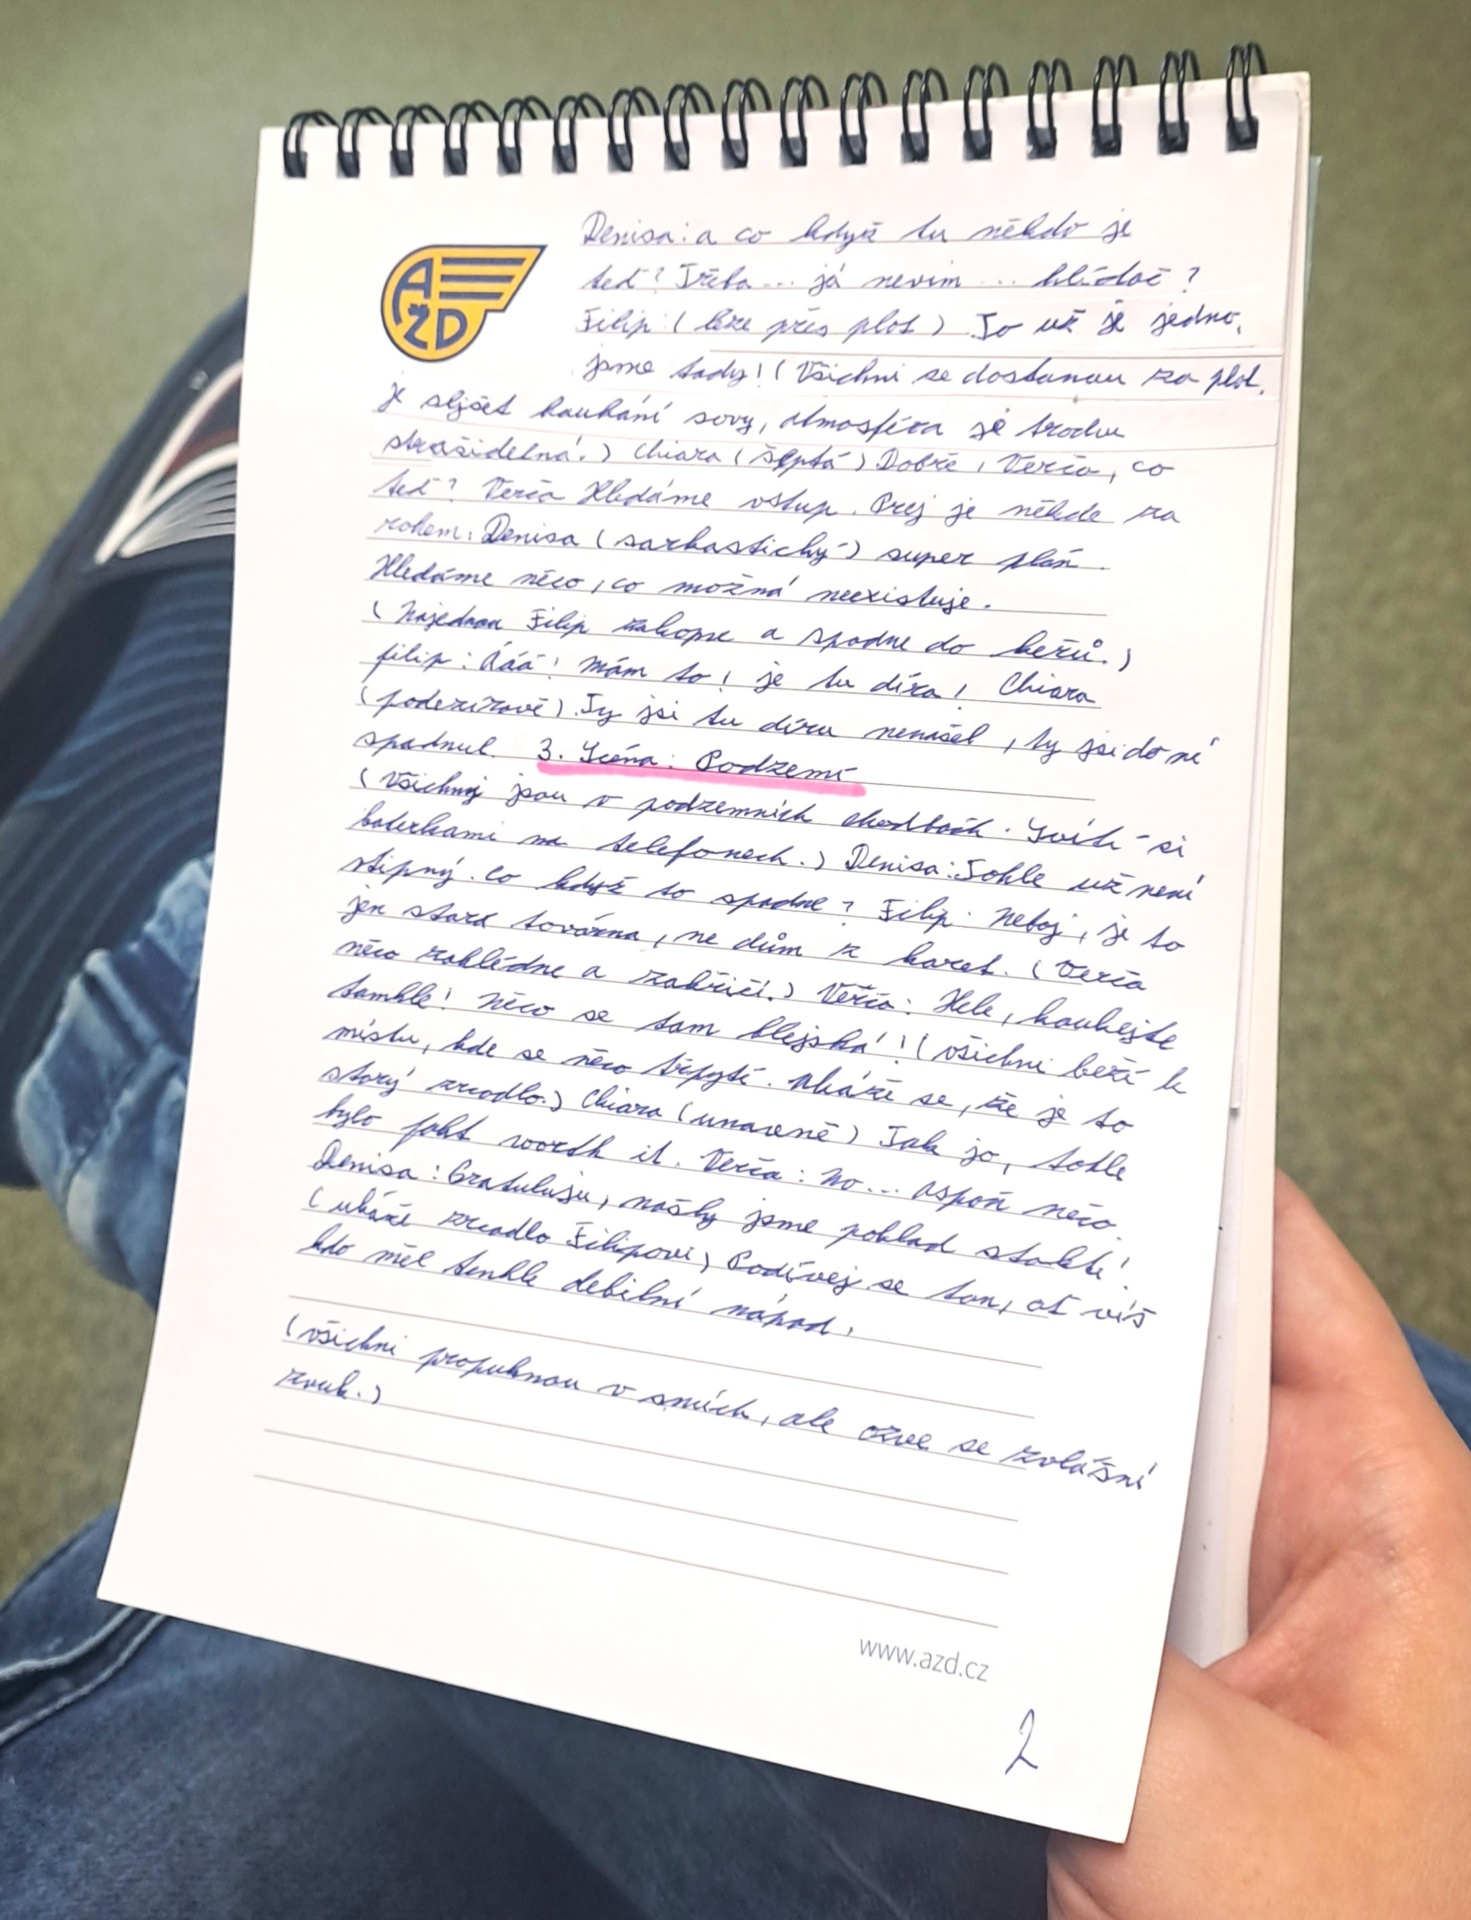 AŽD
Denisa: a co když tu někdo je
teď? Třeba... já nevim... hlídač?
Filip: (leze přes plot) To už je jedno,
jsme tady! (Všichni se dostanou za plot.
Je slyšet houkání sovy, atmosféra je trochu
strašidelná.) Chiara (šeptá) Dobře, Verča, co
teď? Verča Hledáme vstup. Prej je někde za
rohem. Denisa (sarkastický) super plán.
Hledáme něco, co možná neexistuje.
(Najednou Filip zakopne a spadne do keřů.)
filip: Ááá! mám to! je tu díra! Chiara
(podezíravě) Ty jsi tu díru nenašel, ty jsi do ní
spadnul. 3. Scéna: Podzemí
(Všichni jsou v podzemních chodbách. Svítí si
baterkami na telefonech.) Denisa: Tohle už není
vtipný. co když to spadne? Filip: Neboj, je to
jen stará továrna, ne dům z karet. (Verča
něco zahlédne a zakřičí.) Verča: Hele, koukejte
tamhle! Něco se tam blejská! (všichni beží k
místu, kde se něco třpytí. Ukáže se, že je to
starý zrcadlo.) Chiara (unaveně) Tak jo, tohle
bylo fakt worth it. Verča: No... aspoň něco.
Denisa: Gratuluju, našly jsme poklad století.
(ukáže zrcadlo Filipovi) Podívej se tam, ať víš
kdo měl tenhle debilní nápad.
(všichni propuknou v smích, ale ozve se zvláštní
zvuk.)
www.azd.cz
2